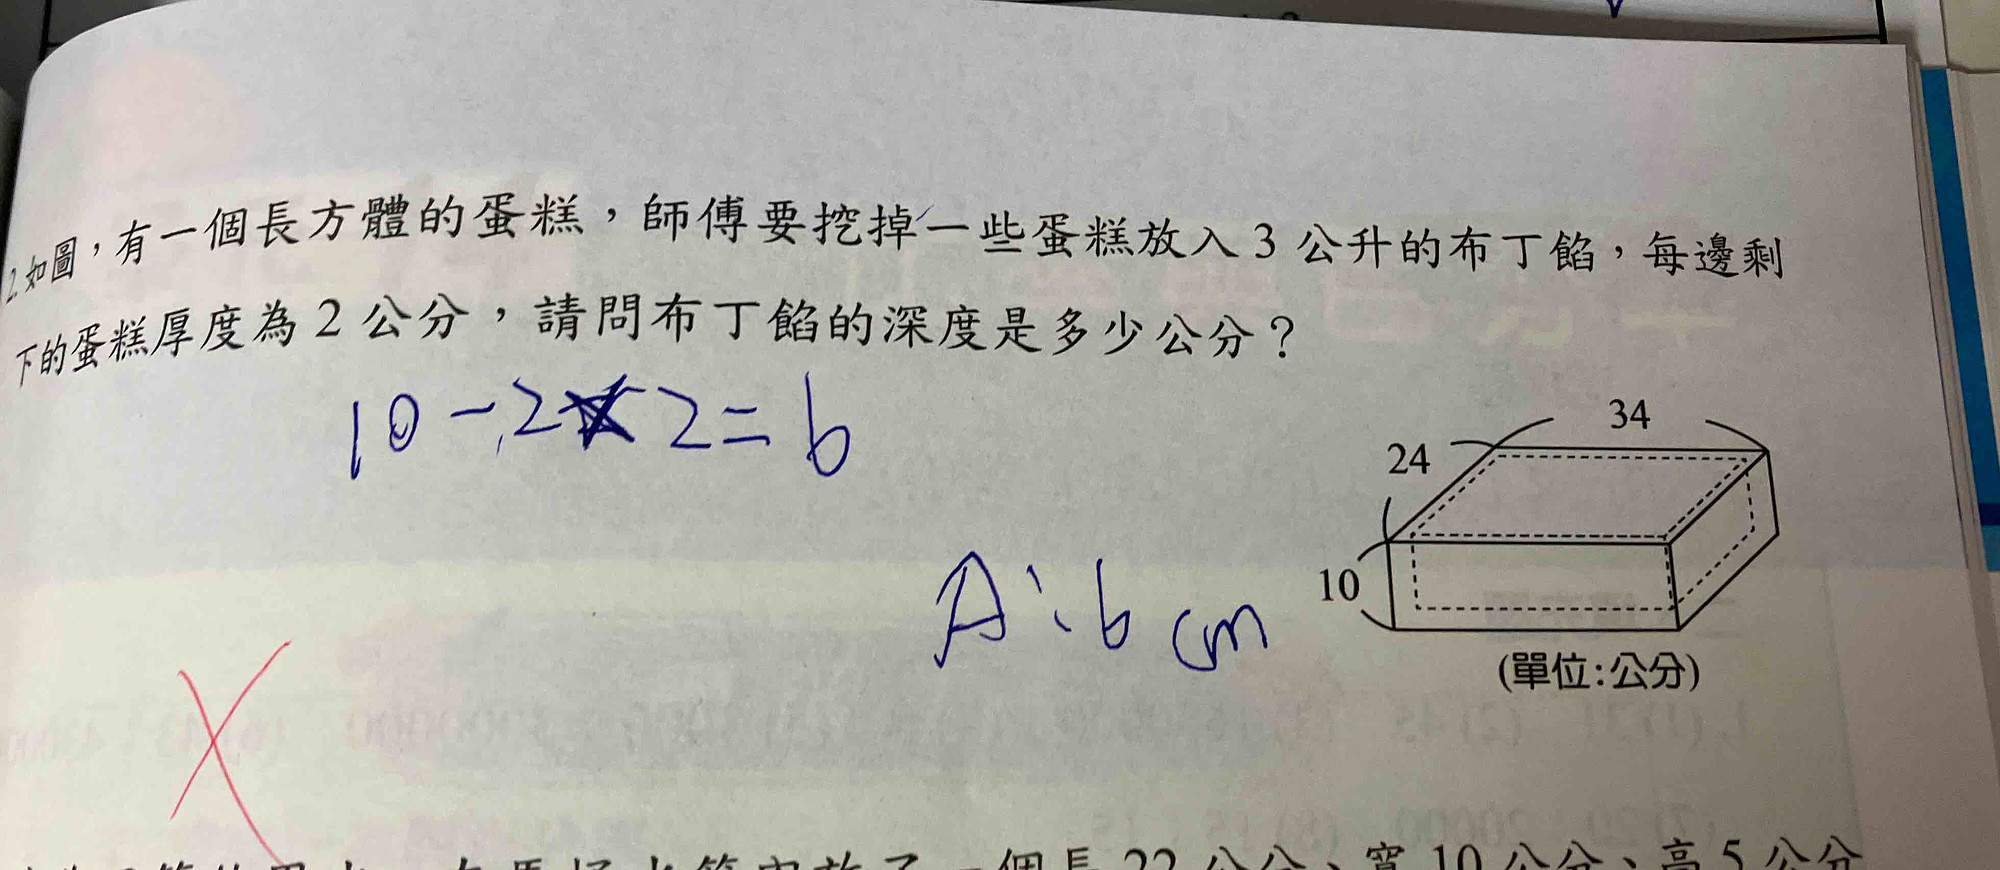 2. 如圖，有一個長方體的蛋糕，師傅要挖掉一些蛋糕放入3公升的布丁餡，每邊剩
下的蛋糕厚度為2公分，請問布丁餡的深度是多少公分？
10-2×2=6
A:6cm
34
24
10
(單位:公分)
一個長22公分、寬10公分、高5公分